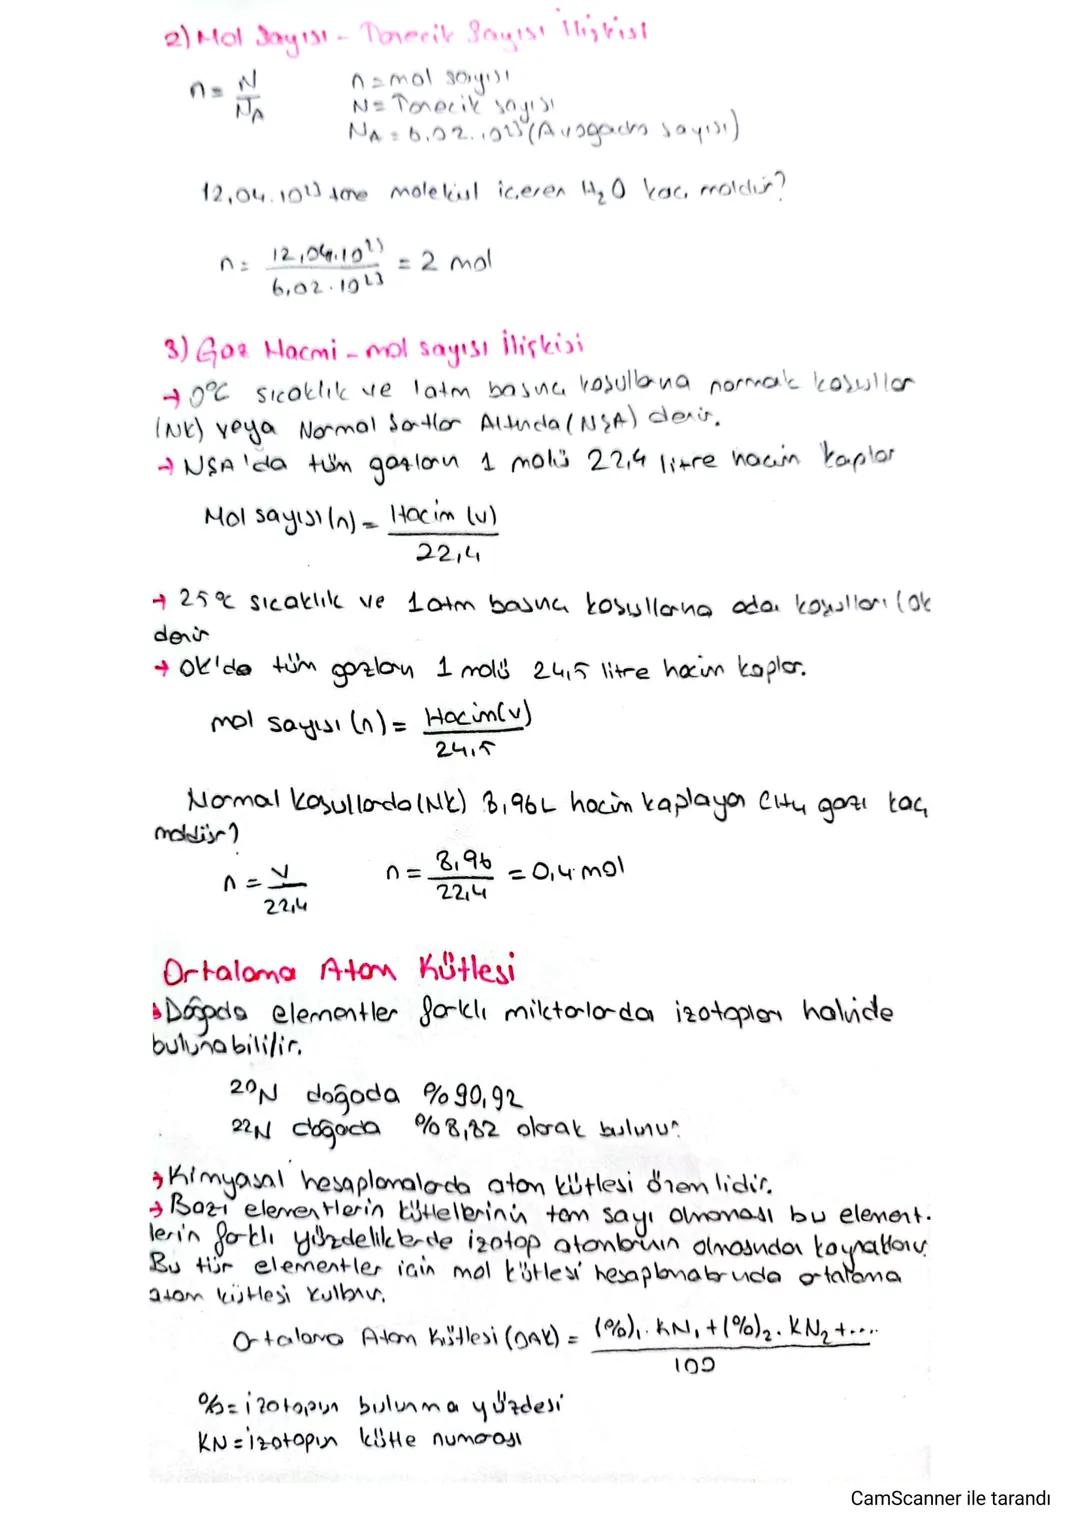 2) Mol Sayısı - Tanecik Sayısı İlişkisi
n = N / NA
n = mol sayısı
N = Tanecik sayısı
NA = 6,02.10²³ (Avogadro sayısı)
12,04.10²³ tane molekül içeren H₂O kaç moldür?
n = 12,04.10²³ / 6,02.10²³ = 2 mol
3) Gaz Hacmi - mol sayısı İlişkisi
→ 0°C sıcaklık ve 1atm basınç koşullarına normal koşullar
(NK) veya Normal Şartlar Altında (NŞA) denir.
→ NŞA'da tüm gazların 1 molü 22,4 litre hacim kaplar
Mol sayısı (n) = Hacim (v) / 22,4
→ 25°C sıcaklık ve 1atm basınç koşullarına oda koşulları (OK
denir
→ OK'da tüm gazların 1 molü 24,5 litre hacim kaplar.
mol sayısı (n) = Hacim (v) / 24,5
Normal koşullarda (NK) 8,96L hacim kaplayan CH₄ gazı kaç
moldür?
n = v / 22,4 n = 8,96 / 22,4 = 0,4 mol
Ortalama Atom Kütlesi
→ Doğada elementler farklı miktarlarda izotopları halinde
bulunabilir.
²⁰N doğada %90,92
²²N doğada %8,82 olarak bulunur.
→ Kimyasal hesaplamalarda atom kütlesi önemlidir.
→ Bazı elementlerin kütlelerinin tam sayı olmaması bu element-
lerin farklı yüzdeliklerde izotop atomlarının olmasından kaynaklanır.
Bu tür elementler için mol kütlesi hesaplamalarında ortalama
atom kütlesi kullanılır.
Ortalama Atom Kütlesi (OAK) = (%)₁. KN₁ + (%)₂. KN₂ + .... / 100
% = izotopun bulunma yüzdesi
KN = izotopun kütle numarası
CamScanner ile tarandı